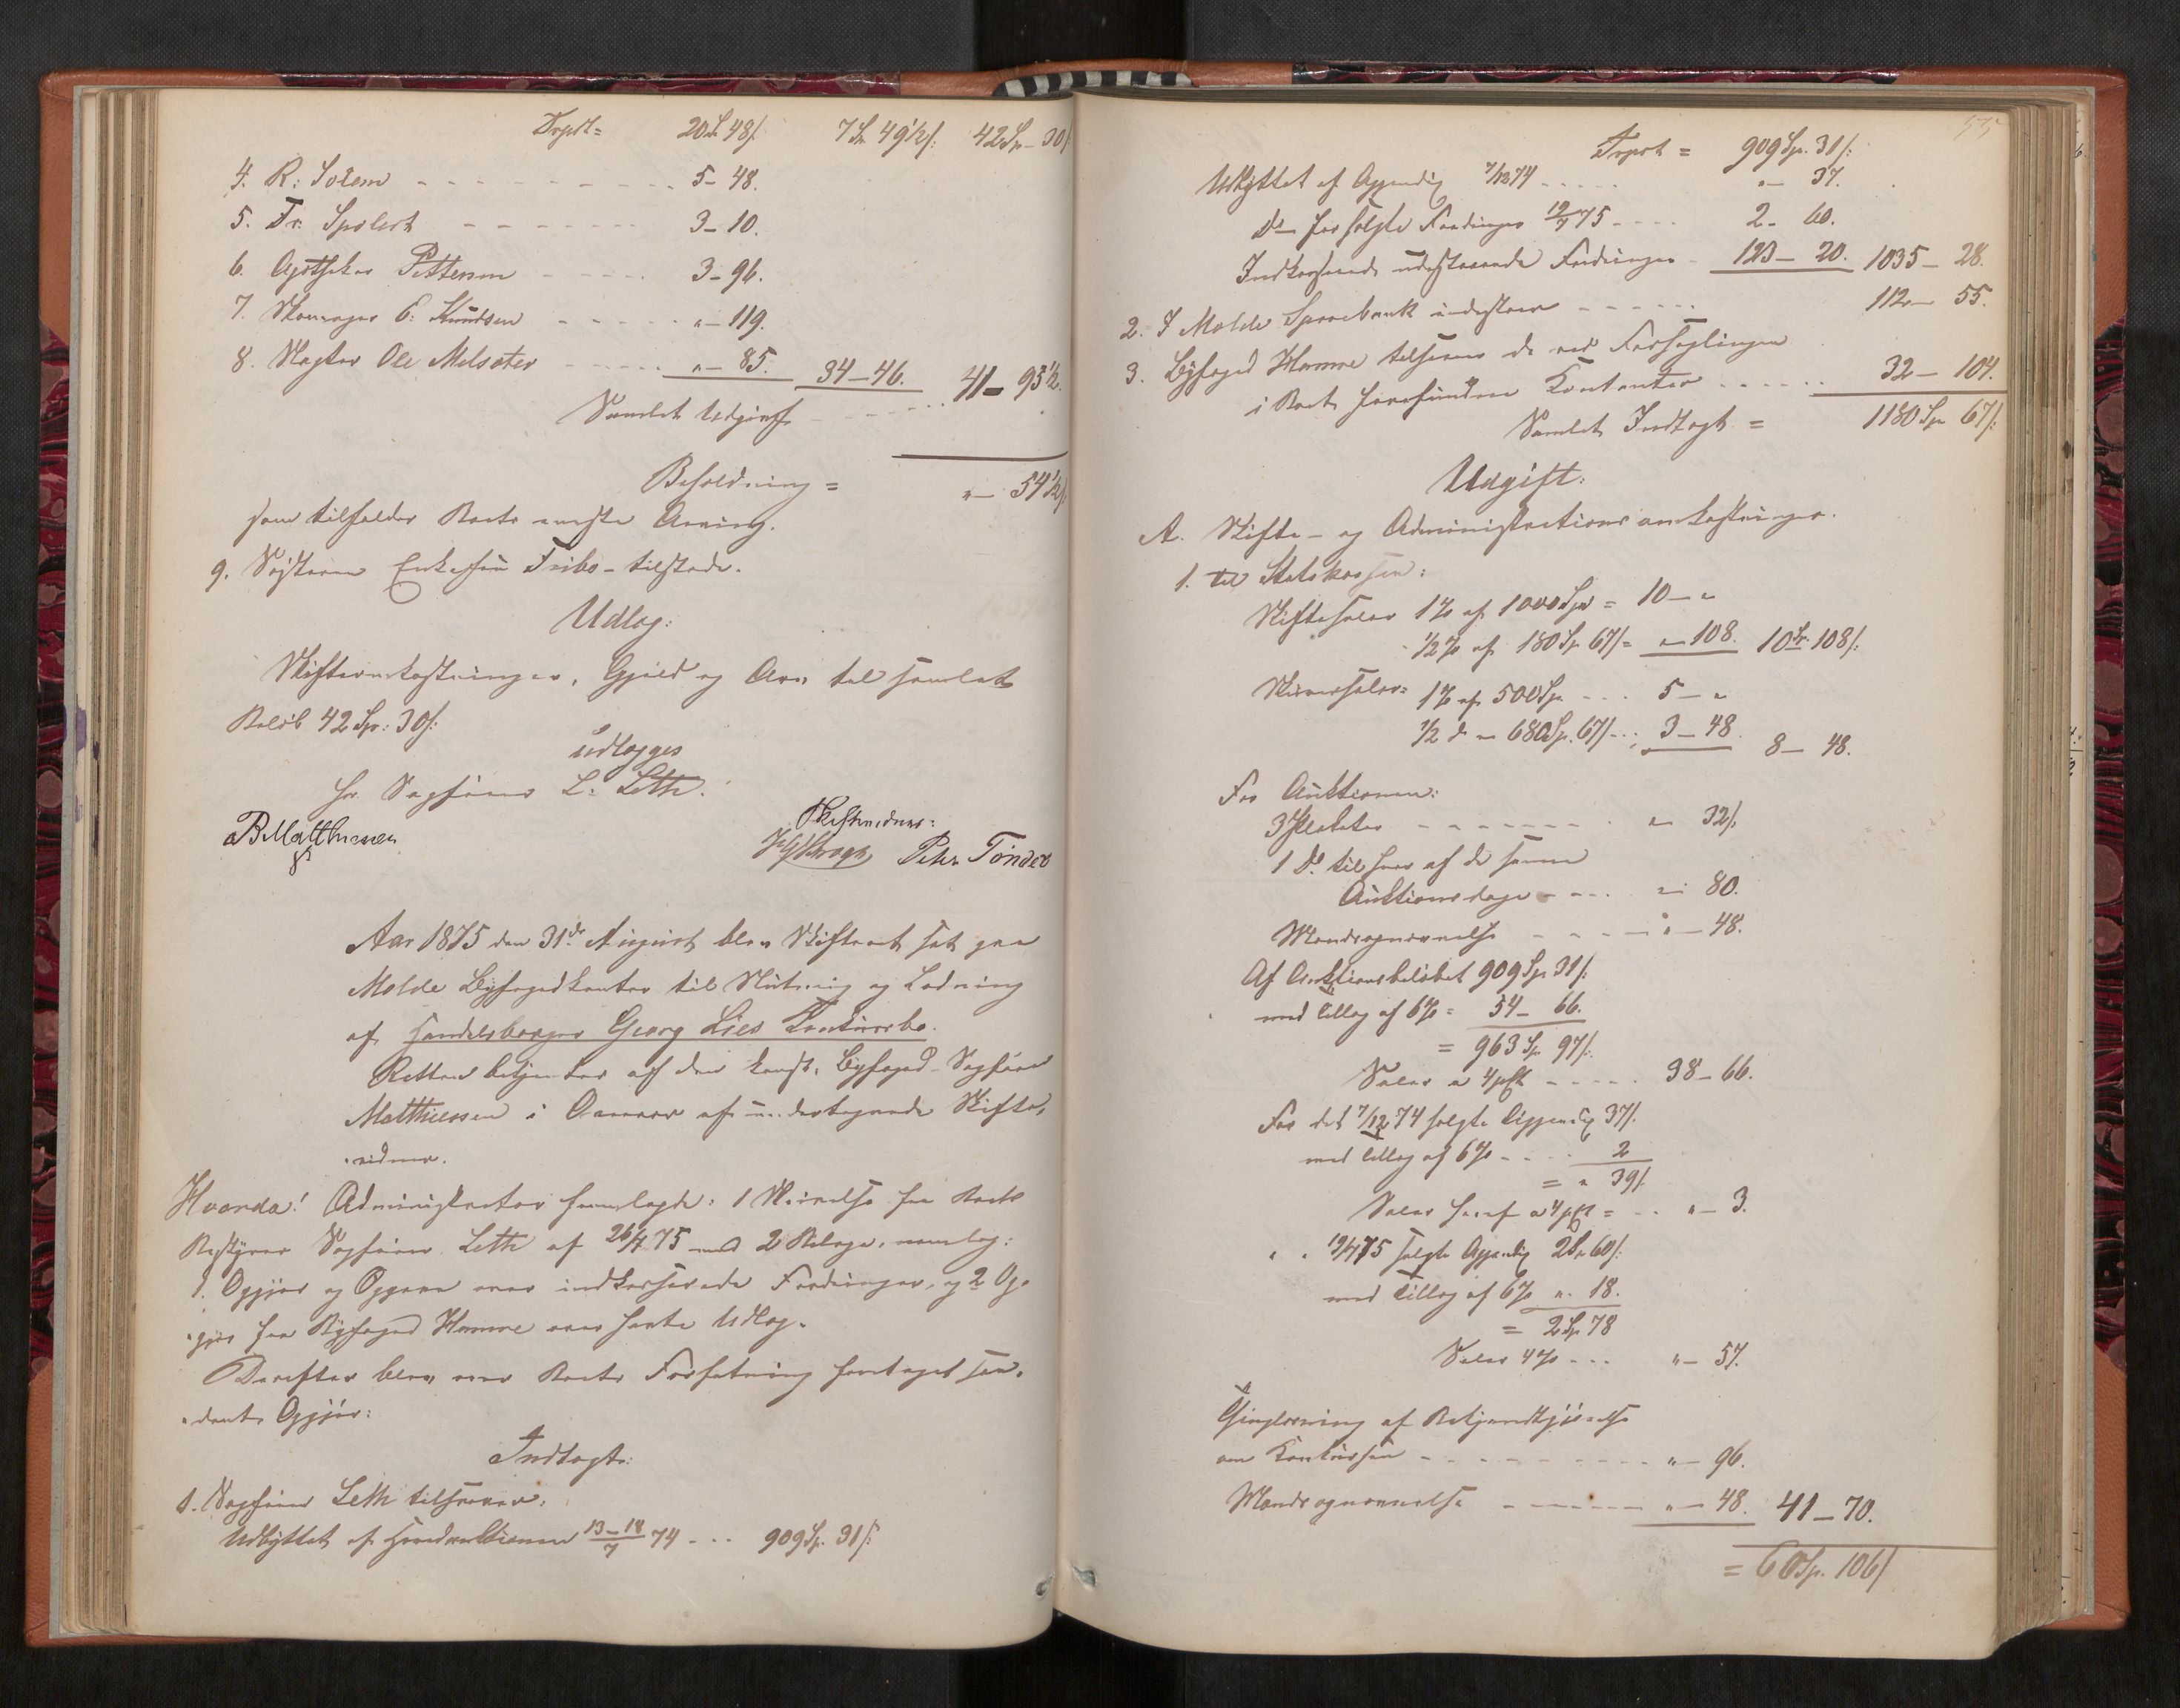 Trpt = 20 Sp 48 s. 7 Sp 49 1/2 s. 42 Sp – 30 s
4. R. Solem - - - 5 – 48.
5. Fr. Sperles - - - 3 – 10.
6. Apotheker Petterson - - - 3 – 96.
7. Skomager C. Knudsen - - - " – 119.
8. Slagter Ole Melsæter - - - " – 85. 34 – 46. 41 – 95 1/2.
Samlet Udgivt
Beholdning = " – 54 1/2 s
som tilfalder Boets eneste Arving.
9. Søsteren Enkefru Tribo – tilstede.
Udlæg:
Skifteomkostninger, Gjæld og Arv til samlet
Beløb 42 Sp: 30 s.
udlægges
Hr. Sagfører L. Leth.
B. Matthiessen
Skiftevidner:
Krogh Peter Tønder
Aar 1875 den 31te August blev Skifteret sat paa
Molde Byfogedkontor til Slutning og Lodning
af Handelsborger Georg Lies Konkursbo.
Retten betjentes af den const. Byfoged Sagfører
Matthiessen i Overvær af undertegnede Skifte-
vidner.
Hvorda! Administrator fremlagde: 1 Skrivelse fra Boets
Bestyrer Sagfører Leth af 26/7 75 med 2 Bilage, nemlig:
1. Opgjør og Opgave over indkasserede Fordringer, og 2 Op-
gjør fra Byfoged Hamme over havte Udlæg.
Derefter blev over Boets Forfatning foretaget saa-
dant Opgjør:
Indtægt:
1. Sagfører Leth tilsvarer:
Udbyttet af Hovedauktionen 13–18/7 74 - - - 909 Sp. 31 s.
575
Trpot = 909 Sp. 31 s.
Udbyttet af Appendix 7/12 74 - - - " – 37.
Do for solgte Fordringer 19/7 75 - - - 2 – 60.
Indkasserede udestaaende Fordringer - 123 – 20. 1035 – 28.
2. I Molde Sparebank indestaar - - - 112 – 55.
3. Byfoged Hamme tilsvarer de ved Forseglingen
i Boet forefundne Contanter - - - 32 – 104.
Samlet Indtægt = 1180 Sp 67 s.
Udgift:
A. Skifte- og Administrationsomkostninger.
1. til Statskassen:
Skiftesalær 1 % af 1000 Sp = 10 – "
1/2 % af 180 Sp 67 s = " – 108. 10 Sp. 108 s.
Skriversalær: 1 % af 500 Sp - - - 5 – "
1/2 do " 680 Sp. 67 s - - - 3 – 48. 8 – 48.
For Auktionen:
3 Plakater - - - " 32 s.
1 Do til hver af de samme
Auktionsdage - - - " 80.
Mandsopnævnelse - - - " – 48.
Af Auktionsbeløbet 909 Sp 31 s.
med Tillæg af 6 % = 54 – 66.
= 963 Sp 97 s.
Salær a 4 pCt - - - 38 – 66.
For det 7/12 74 solgte Appendix 37 s.
med Tillæg af 6 % - - - 2
= " 39 s
Salær heraf a 4 pCt = - - " – 3.
" " 19/7 75 solgte Appendix 2 Sp 60 s.
med Tillæg af 6 % " 18.
= 2 Sp 78
Salær 4 % - - - " – 57.
Thinglæsning af Bekjendtgjørelse
om Konkursen - - - " – 96.
Mandsopnævnelse - - - " – 48. 41 – 70.
= 60 Sp. 106 s